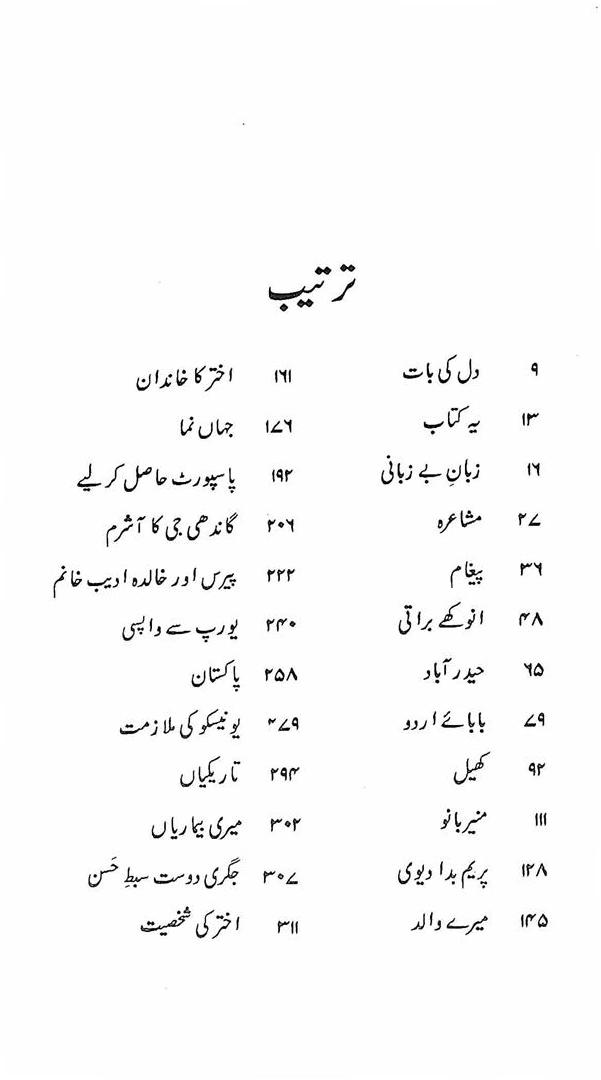 ترتیب
۹ دل کی بات
۱۳ یہ کتاب
۱۶ زبانِ بے زبانی
۲۷ مشاعرہ
۳۶ پیغام
۴۸ انوکھے براتی
۶۵ حیدرآباد
۷۹ بابائے اردو
۹۲ کھیل
۱۱۱ منیر بانو
۱۲۸ پریم بدا دیوی
۱۴۵ میرے والد
۱۶۱ اختر کا خاندان
۱۷۶ جہاں نما
۱۹۲ پاسپورٹ حاصل کر لیے
۲۰۶ گاندھی جی کا آشرم
۲۲۲ پیرس اور خالدہ ادیب خانم
۲۴۰ یورپ سے واپسی
۲۵۸ پاکستان
۲۷۹ یونیسکو کی ملازمت
۲۹۴ تاریکیاں
۳۰۲ میری بیماریاں
۳۰۷ جگری دوست سبطِ حَسن
۳۱۱ اختر کی شخصیت